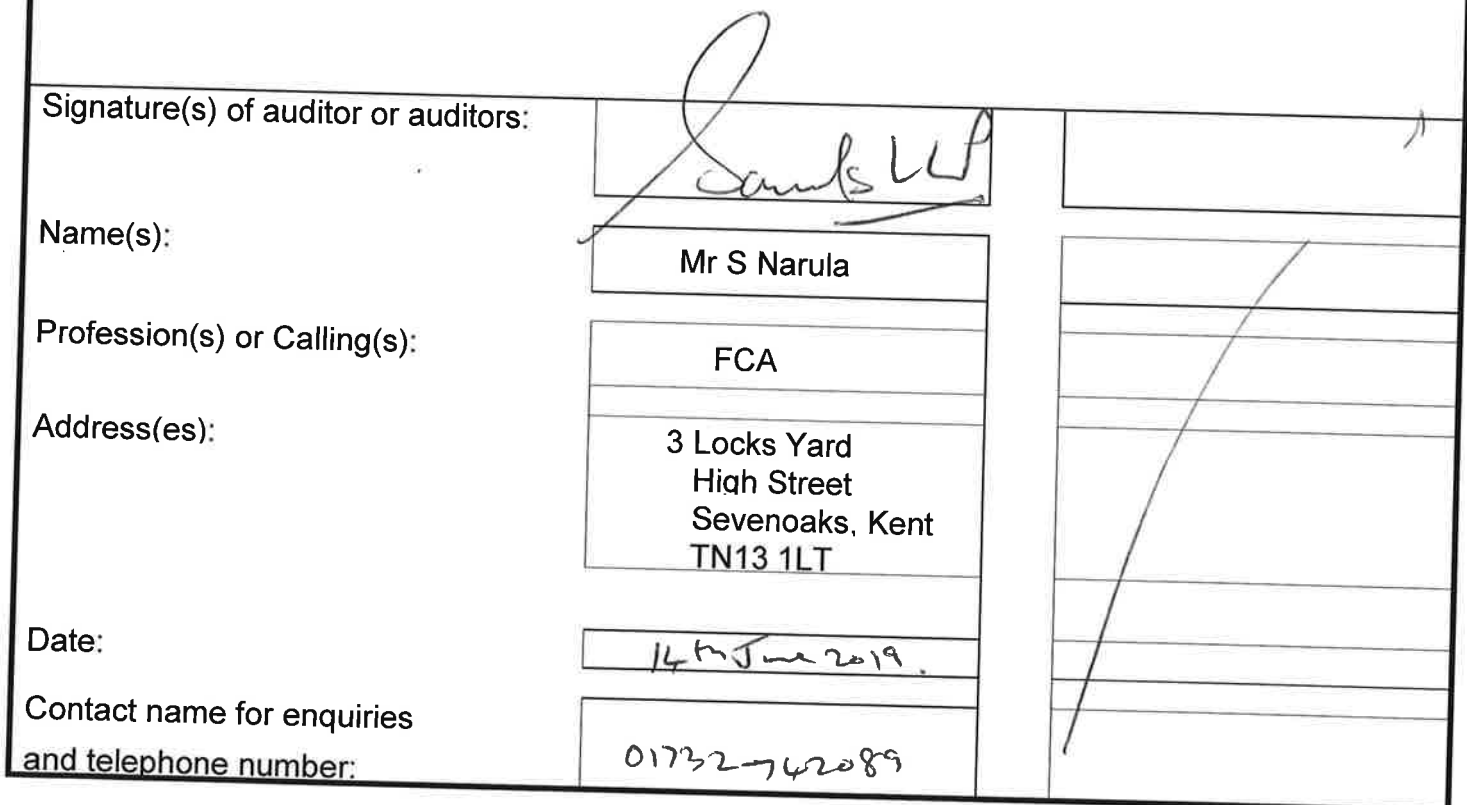 Signature(s) of auditor or auditors:
LLP
Name(s):
Mr S Narula
Profession(s) or Calling(s):
FCA
Address(es):
3 Locks Yard
High Street
Sevenoaks, Kent
TN13 1LT
Date:
14th June 2019.
Contact name for enquiries
and telephone number:
01732-742089